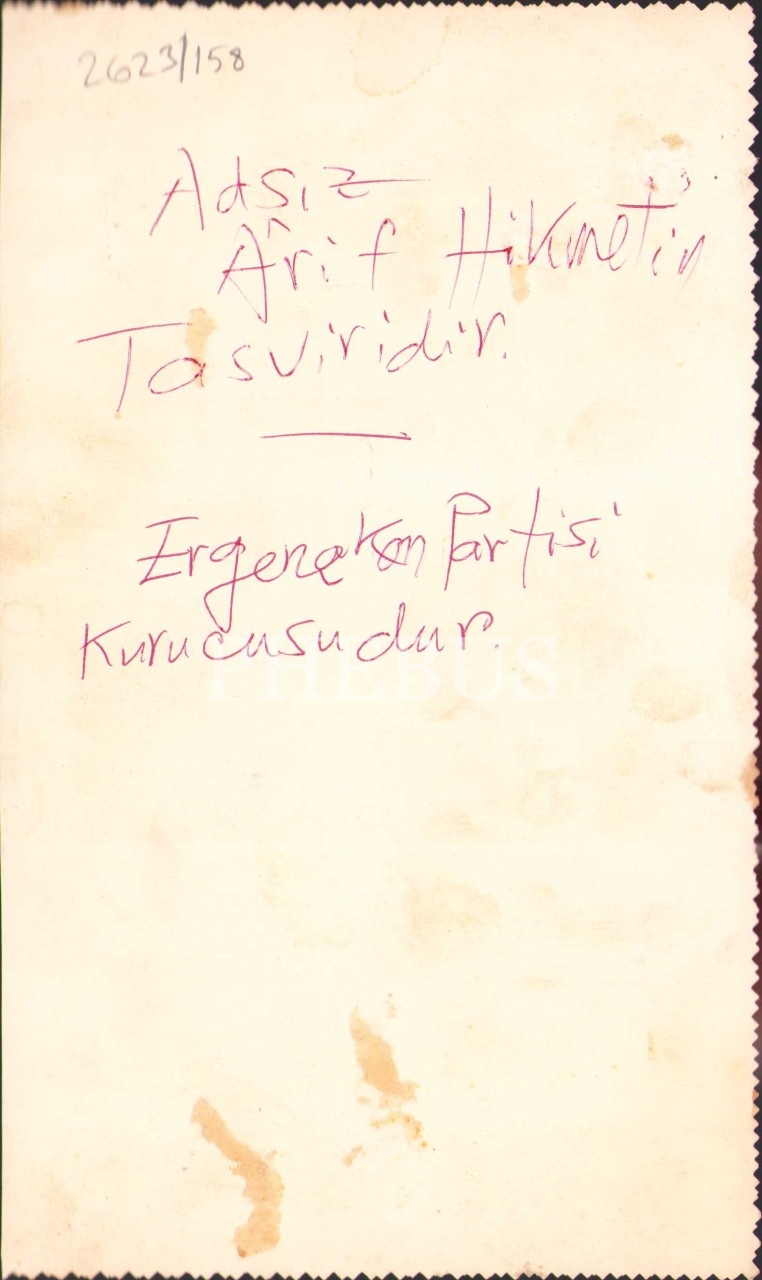 2623/158
Adsız
Ârif Hikmetin
Tasviridir.
Ergenekon Partisi
Kurucusudur.
PHEBUS